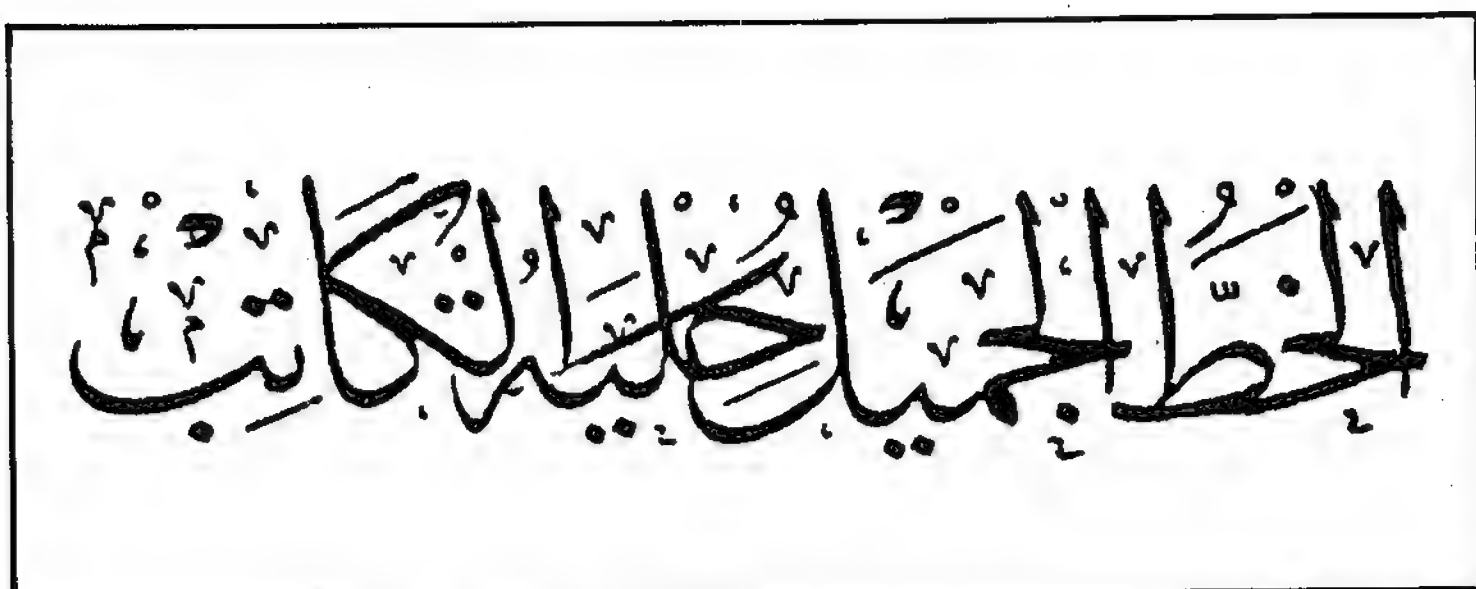 الخط الجميل حلية الكاتب